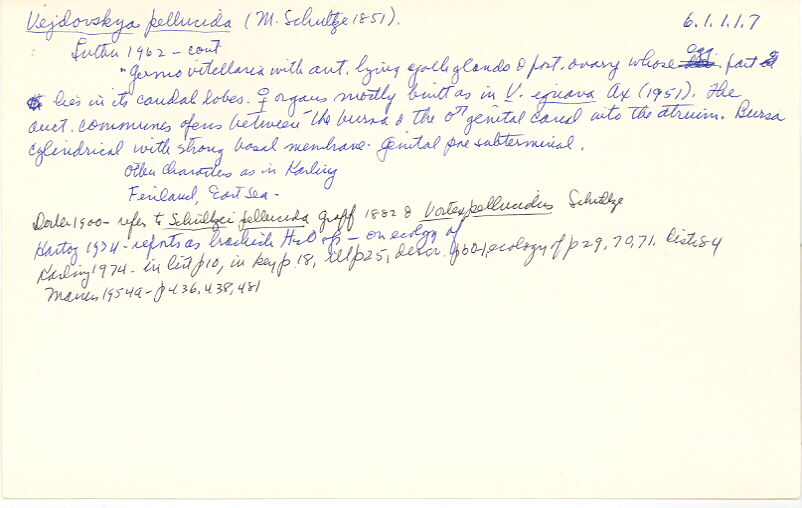 Vejdovskya pellucida (M. Schultze 1851). 6.1.1.1.7
Luther 1962 - cont
"Germovitellaria with ant. lying yolk glands & post. ovary whose egg part
lies in its caudal lobes. ♀ organs mostly built as in V. ignava Ax (1951). The
duct. communis opens between the bursa & the ♂ genital canal into the atrium. Bursa
cylindrical with strong basal membrane. Genital pore subterminal.
Other characters as in Karling
Finland, East Sea -
Dorler 1900 - refers to Schultzei pellucida Graff 1882 & Vortex pellucidus Schultze
Hartog 1974 - reports as brackish H2O sp - on ecology of
Karling 1974 - in list p10, in key p.18, ill p25, descr. p60-1, ecology of p29, 70, 71. Dist. 84
Marcus 1954a - p436, 438, 481